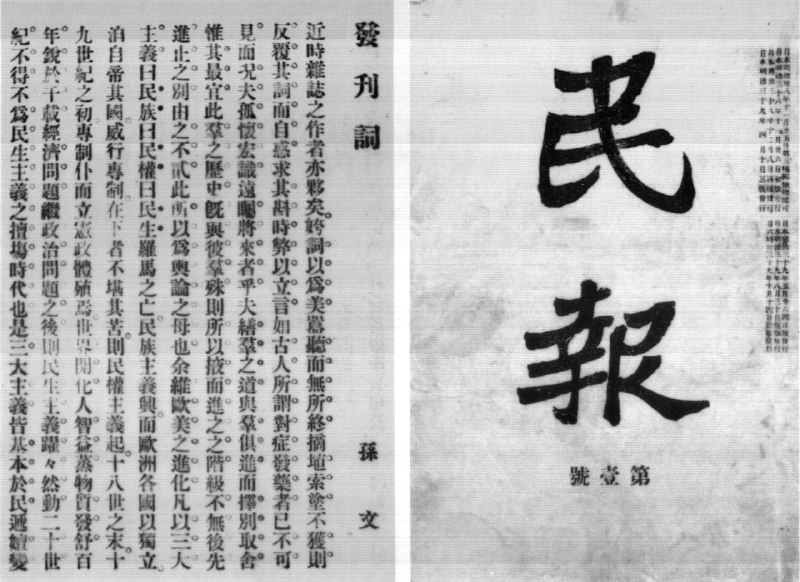 民報
第壹號
發刊詞
孫文
近時雜誌之作者亦夥矣姱詞以爲美囂聽而無所終摘埴索塗不獲則
反覆其詞而自惑求其斟時弊以立言如古人所謂對症發藥者已不可
見而況夫孤懷宏識遠矚將來者乎夫繕羣之道與羣俱進而擇別取舍
惟其最宜此羣之歷史既與彼羣殊則所以掖而進之之階級不無後先
進止之別由之不貳此所以爲輿論之母也余維歐美之進化凡以三大
主義曰民族曰民權曰民生羅馬之亡民族主義興而歐洲各國以獨立
洎自帝其國威行專制在下者不堪其苦則民權主義起十八世之末十
九世紀之初專制仆而立憲政體殖焉世界開化人智益蒸物質發舒百
年銳於千載經濟問題繼政治問題之後則民生主義躍々然動二十世
紀不得不爲民生主義之擅塲時代也是三大主義皆基本於民遞嬗變